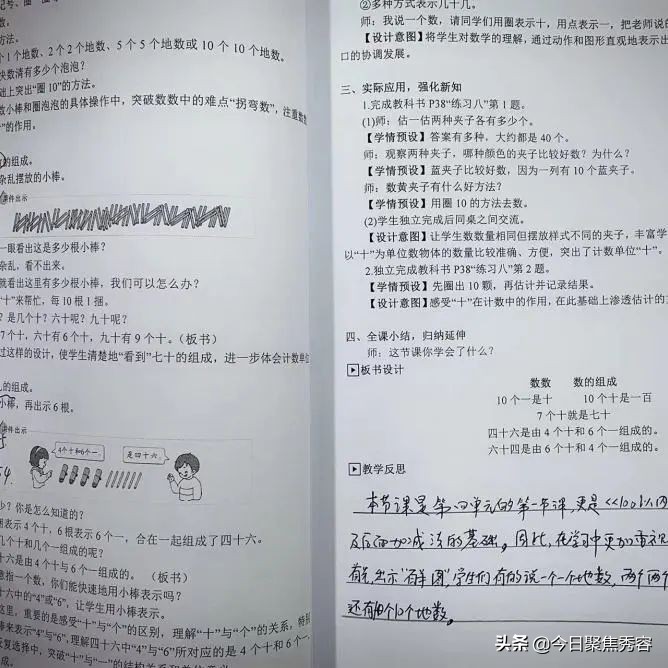 方法。
1个地数、2个2个地数、5个5个地数或10个10个地数。
快数清有多少个泡泡？
上突出“圈10”的方法。
数小棒和圈泡泡的具体操作中，突破数数中的难点“拐弯数”，注重数
的作用。
的组成。
杂乱摆放的小棒。
课件出示
一眼看出这是多少根小棒？
杂乱，看不出来。
就看出这里有多少根小棒，我们可以怎么办？
“十”来帮忙，每10根1捆。
？是几个十？六十呢？九十呢？
7个十，六十有6个十，九十有9个十。（板书）
过这样的设计，使学生清楚地“看到”七十的组成，进一步体会计数单位
的组成。
小棒，再出示6根。
课件出示
4个十和6个一。
是四十六。
少？你是怎么知道的？
捆表示4个十，6根表示6个一，合在一起组成了四十六。
几个十和几个一组成的呢？
十六是由4个十与6个一组成的。（板书）
意指一个数，你们能快速地用小棒表示吗？
十六中的“4”或“6”，让学生用小棒表示。
这里，重要的是感受“十”与“个”的区别，理解“十”与“个”的关系，特别
棒来表示“4”与“6”，理解四十六中“4”与“6”所对应的是4个十和6个一，
②多种方式表示几十几。
师：我说一个数，请同学们用圈表示十，用点表示一，把老师说的
【设计意图】将学生对数学的理解，通过动作和图形直观地表示出
口的协调发展。
三、实际应用，强化新知
1.完成教科书P38“练习八”第1题。
(1)师：估一估两种夹子各有多少个。
【学情预设】答案有多种，大约都是40个。
师：观察两种夹子，哪种颜色的夹子比较好数？为什么？
【学情预设】蓝夹子比较好数，因为一列有10个蓝夹子。
师：数黄夹子有什么好方法？
【学情预设】用圈10的方法去数。
(2)学生独立完成后同桌之间交流。
【设计意图】让学生数数量相同但摆放样式不同的夹子，丰富学
以“十”为单位数物体的数量比较准确、方便，突出了计数单位“十”。
2.独立完成教科书P38“练习八”第2题。
【学情预设】先圈出10颗，再估计并记录结果。
【设计意图】感受“十”在计数中的作用，在此基础上渗透估计的
四、全课小结，归纳延伸
师：这节课你学会了什么？
板书设计
数数 数的组成
10个一是十 10个十是一百
7个十就是七十
四十六是由4个十和6个一组成的。
六十四是由6个十和4个一组成的。
教学反思
本节课是第四单元的第一节课，更是《100以内
及后面加减法的基础。因此，在学习中更加重视
首先出示“百羊图”，学生们有的说一个一个地数，两个两个
还有的10个10个地数。
头条 @今日聚焦秀容